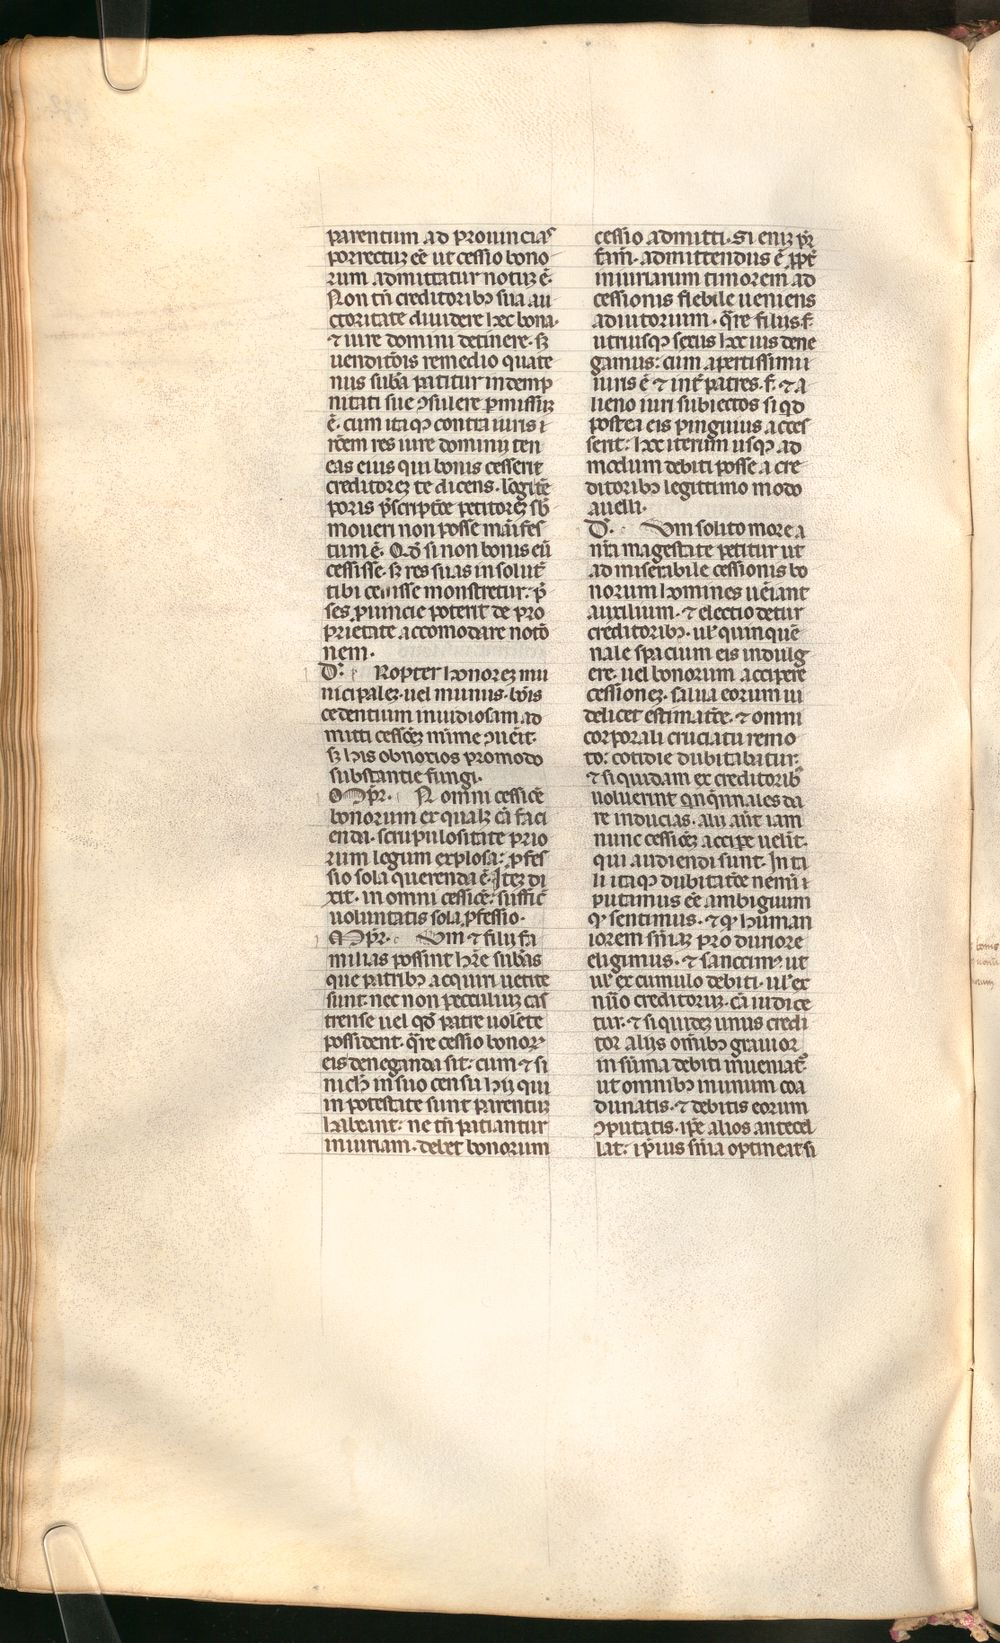 parentum ad prouincias
porrectuz ee̅ ut cessio bono
rum admittatur notuz e̅.
Non tn̅ creditoribꝫ sua au
ctoritate diuidere hec bona.
⁊ iure domini detinere. sꝫ
uenditōis remedio quate
nus suba̅ patitur indemp
nitati sue ꝯsulere p̱missuꝫ
e̅. cum itaqꝫ contra iuris i
rōem res iure dominij ten
eas eius qui bonis cesserit
creditorez te dicens. lo̅gite̅
poris p̅scriptōe petitorez sb̅
moueri non posse ma̅ifes
tum e̅. Qd̅ si non bonis eu̅
cessisse. sꝫ res suas in solut̅
tibi dedisse monstretur. p̅
ses ꝓuincie poterit de pro
prietate accomodare noto̅
nem.
D. Ropter honorez mu
nicipalez. uel munus. bo̅is
cedentium inuidiosam ad
mitti cessōez mi̅me ꝯue̅it.
sꝫ his obnoxios promodo
substantie fungi.
Im̅pr. N omni cessio̅e
bonorum ex qualꝫ ca̅ faci
enda. scrupulositate prio
rum legum explosa: ꝓfes
sio sola querenda e̅. Itez di
xit. in omni cessio̅e: suffic̅
uoluntatis sola ꝓfessio.
Im̅pr. Vm ⁊ filij fa
milias possint hr̅e subas̅
que patribꝫ acquiri uetite
sunt. nec non peculiuz cas
trense uel qd̅ patre uole̅te
possident. qr̅e cessio bonoꝝ
eis deneganda sit: cum ⁊ si
nichil in suo censu hij qui
in potestate sunt parentuz
habeant: ne tn̅ patiantur
iniuriam. debet bonorum
cessio admitti. Si enim pr̅
fam̅. admittendus e̅ ꝓpt̅
iniuriarum timorem ad
cessionis flebile ueniens
adiutorium. qr̅e filius. f.
utriusqꝫ sexus hoc ius dene
gamus: cum apertissimi
iuris e̅ ⁊ int̅ patres. f. ⁊ a
lieno iuri subiectos si qd̅
postea eis pinguius acces
serit: hoc iterum usqꝫ ad
modum debiti posse a cre
ditoribꝫ legittimo modo
auelli.
D. Vm solito more a
nr̅a magestate petitur ut
ad miserabile cessionis bo
norum homines ueia̅nt
auxilium. ⁊ electio detur
creditoribꝫ. ul̅ quinque̅
nale spacium eis indulg
ere. uel bonorum accipere
cessionez. salua eorum ui
delicet estimatōe. ⁊ omni
corporali cruciatu remo
to: cotidie dubitabatur.
⁊ si quidam ex creditoribꝫ
uoluerint qn̅qu̅nales da
re inducias. alij aut̅ iam
nunc cessio̅ez accipe uelit̅.
qui audiendi sunt. In ta
li itaqꝫ dubitatōe nemi̅ i
putamus ee̅ ambiguum
qꝫ sentimus. ⁊ qꝫ human
iorem sn̅iaz pro duriore
eligimus. ⁊ sanccimꝰ. ut
ul̅ ex cumulo debiti. ul̅ ex
nu̅o creditoruz. ca̅ iudice
tur. ⁊ siquidez unus credi
tor alijs om̅ibꝫ grauior
in su̅ma debiti inueniat̅.
ut omnibꝫ in unum coa
dunatis. ⁊ debitis eorum
ꝯputatis. ip̅e alios antecel
lat: ip̅ius sn̅ia optineat si